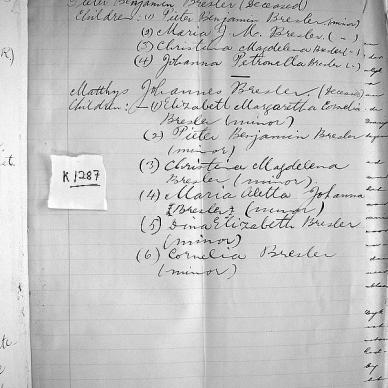 Pieter Benjamin Bresler (Deceased)
Children: (1) Pieter Benjamin Bresler (minor)
(2) Maria J. M. Bresler. ( - )
(3) Christina Magdelena Bresler ( - )
(4) Johanna Petronella Bresler ( - )
Matthys Johannes Bresler (Deceased)
Children: - (1) Elizabeth Margaretha Cornelia
Bresler (minor)
(2) Pieter Benjamin Bresler
(minor)
(3) Christina Magdelena
Bresler (minor)
K 1287
(4) Maria Aletta Johanna
Bresler (minor)
(5) Dina Elizabeth Bresler
(minor)
(6) Cornelia Bresler
(minor)